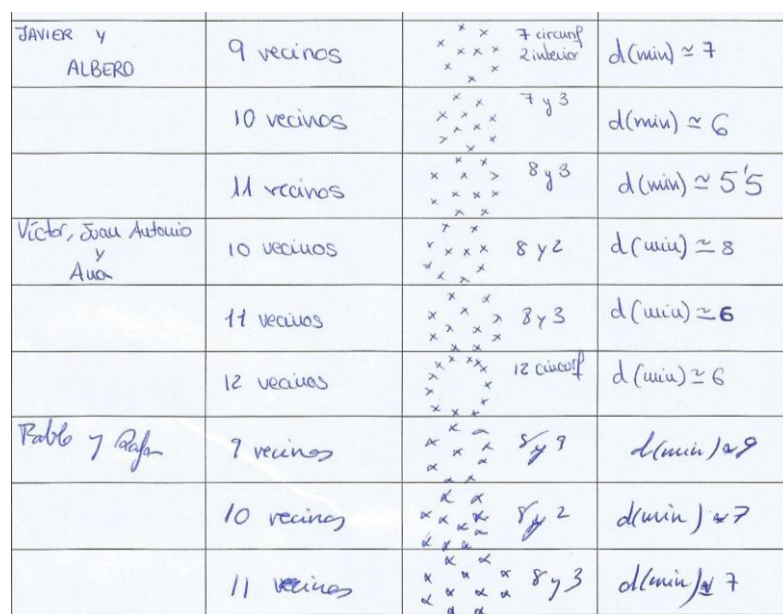 JAVIER y
ALBERO
9 vecinos
7 circunf
2 interior
d(min) ≃ 7
10 vecinos
7 y 3
d(min) ≃ 6
11 vecinos
8 y 3
d(min) ≃ 5'5
Víctor, Juan Antonio
y
Ana
10 vecinos
8 y 2
d(min) ≃ 8
11 vecinos
8 y 3
d(min) ≃ 6
12 vecinos
12 circunf
d(min) ≃ 6
Pablo y Rafa
9 vecinos
8 y 9
d(min) ≃ 9
10 vecinos
8 y 2
d(min) ≃ 7
11 vecinos
8 y 3
d(min) ≃ 7